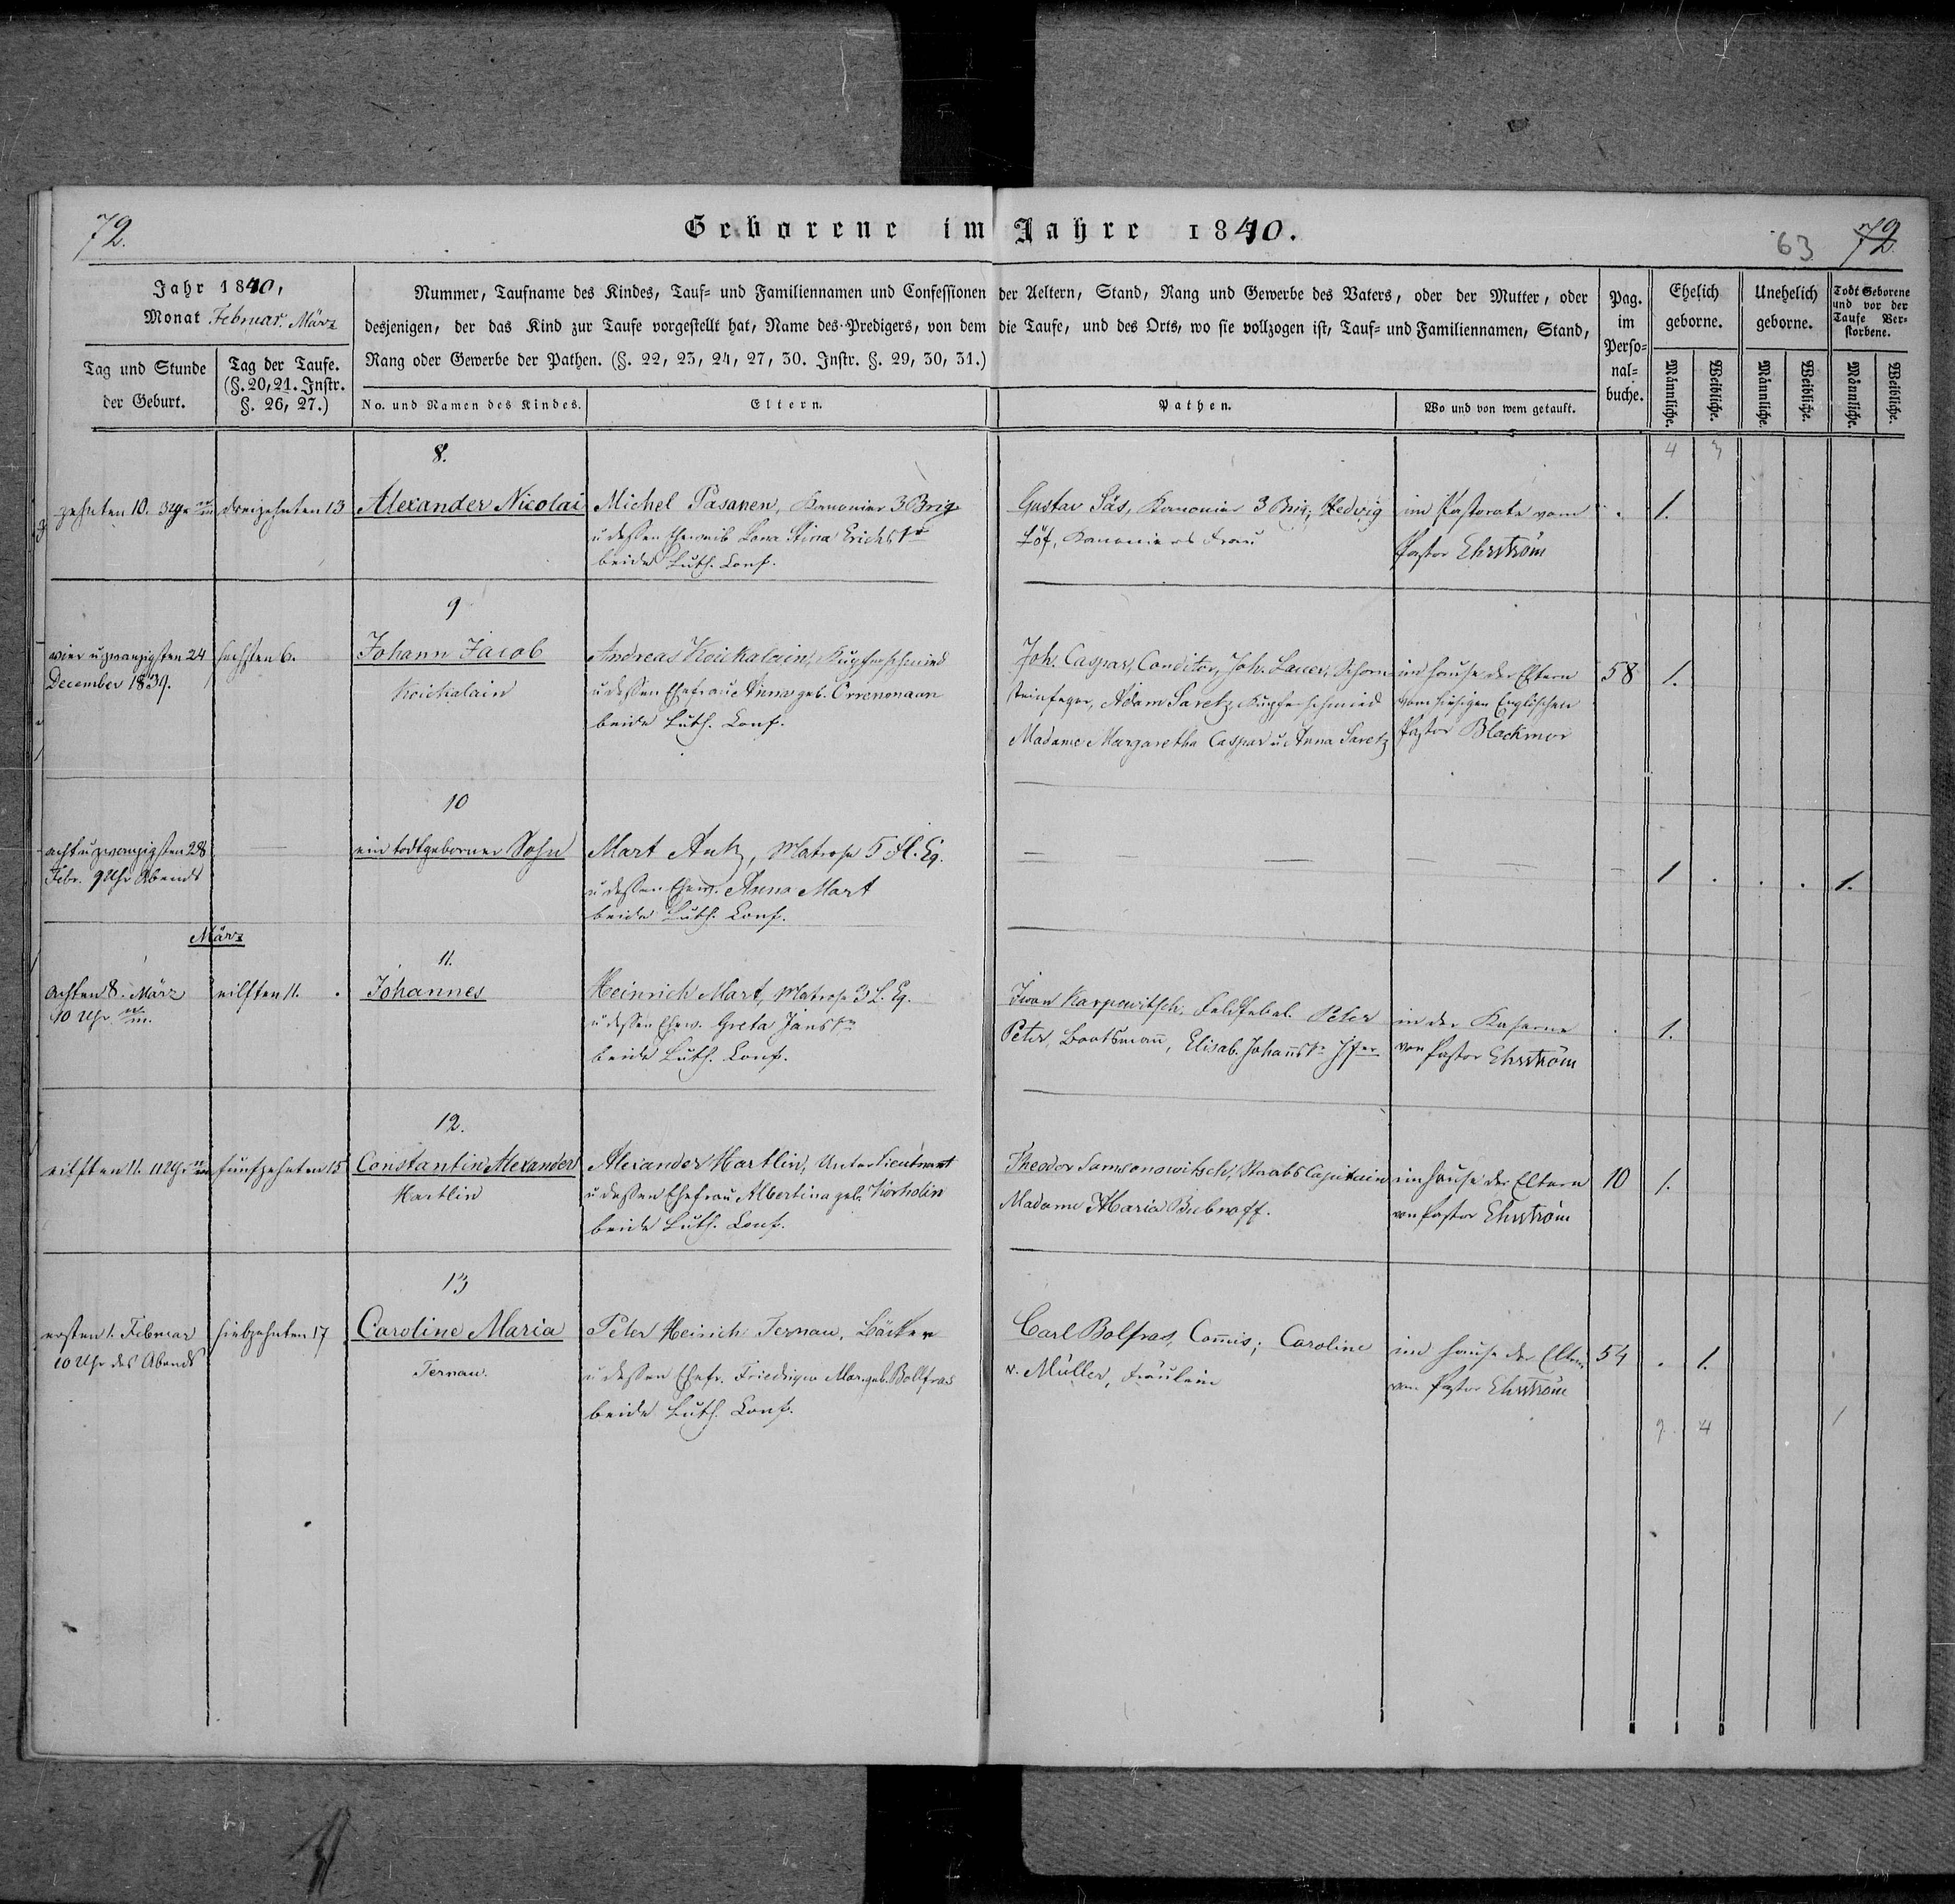 72.
Geborene im Jahre 1840.
63 72
Jahr 1840,
Monat Februar. März
Tag und Stunde
der Geburt.
Tag der Taufe.
(§. 20, 21. Instr.
§. 26, 27.)
Nummer, Taufname des Kindes, Tauf= und Familiennamen und Confessionen der Aeltern, Stand, Rang und Gewerbe des Vaters, oder der Mutter, oder
desjenigen, der das Kind zur Taufe vorgestellt hat, Name des Predigers, von dem die Taufe, und des Orts, wo sie vollzogen ist, Tauf= und Familiennamen, Stand,
Rang oder Gewerbe der Pathen. (§. 22, 23, 24, 27, 30. Instr. §. 29, 30, 31.)
No. und Namen des Kindes.
Eltern.
Pathen.
Wo und von wem getauft.
Pag.
im
Perso=
nal=
buche.
Ehelich
geborne.
Unehelich
geborne.
Todt Geborene
und vor der
Taufe Ver=
storbene.
Männliche.
Weibliche.
Männliche.
Weibliche.
Männliche.
Weibliche.
4 3
8.
zehnten 10. 3 Uhr
dreizehnten 13
Alexander Nicolai
Michel Pasanen, Kanonier 3 Brig
u dessen Eheweib Lena Stina Erichstr
beide Luth. Conf.
Gustav Säs, Kanonier 3 Brig; Hedvig
Löf, Kanoniers Frau
im Pastorate vom
Pastor Ehrström
1.
9
vier u zwanzigsten 24
December 1839.
sechsten 6.
Johann Jacob
Koickalain
Andreas Koickalain, Kupferschmied
u dessen Ehefrau Anna geb. Orrenonaan
beide Luth. Conf.
Joh. Caspar, Conditor, Joh. Lauer, Schorn
steinfeger, Adam Saretz Kupferschmied
Madame Margaretha Caspar u Anna Saretz
im Hause der Eltern
vom hiesigen Englischen
Pastor Blackmor
58
1.
10
acht u zwanzigsten 28
Febr. 9 Uhr Abends
ein todtgeborner Sohn
Mart Ank, Matrose 5 Fl. Eq.
u dessen Ehew. Anna Mart
beide Luth. Conf.
1 . . . 1.
März
11.
achten 8. März
10 Uhr
eilften 11.
Johannes
Heinrich Mart, Matrose 3 L. Eq.
u dessen Ehew. Greta Janstr
beide Luth. Conf.
Iwan Karpowitsch, Feldfebel. Peter
Peter, Bootsmañ, Elisab. Johañstr Jfer
in der Kaserne
von Pastor Ehrström
1.
12.
eilften 11. 11 Uhr
fünfzehnten 15
Constantin Alexander
Hartlin
Alexander Hartlin, Unterlieutnant
u dessen Ehefrau Albertina geb. Korholin
beide Luth. Conf.
Theodor Samsonowitsch, Staabs Capitain
Madame Maria Bubnoff.
im Hause der Eltern
von Pastor Ehrström
10
1.
13
ersten 1. Februar
10 Uhr des Abends
siebzehnten 17
Caroline Maria
Ternau.
Peter Heinich Ternau, Bäcker
u dessen Ehefr. Friedrique Mar. geb. Bollfras
beide Luth. Conf.
Carl Bolfras, Com̄is; Caroline
v. Müller, Fräulein
im Hause der Eltern
von Pastor Ehrström
54
. 1.
9. 4 1